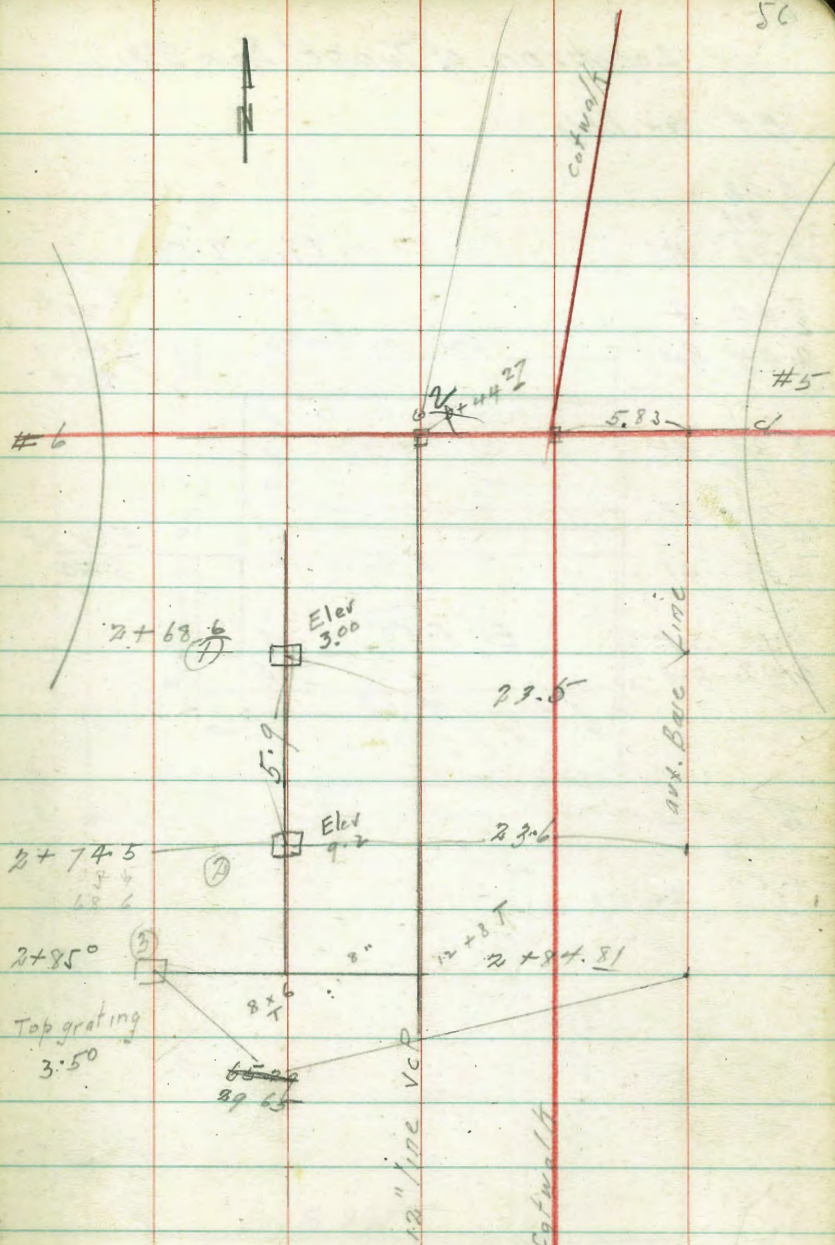 56
N
catwalk
2+44 27
#5
5.83
#6
Elev
3.00
2+68 6
1
23.5
aux. Base Line
5.9
Elev
9.2
23.6
2+74.5
5 9
68 6
2
2+85°
3
8"
12+8 T
2+84.81
8×6
T
Top grating
3.50
65 29
39 65
12" line VCP
Catwalk